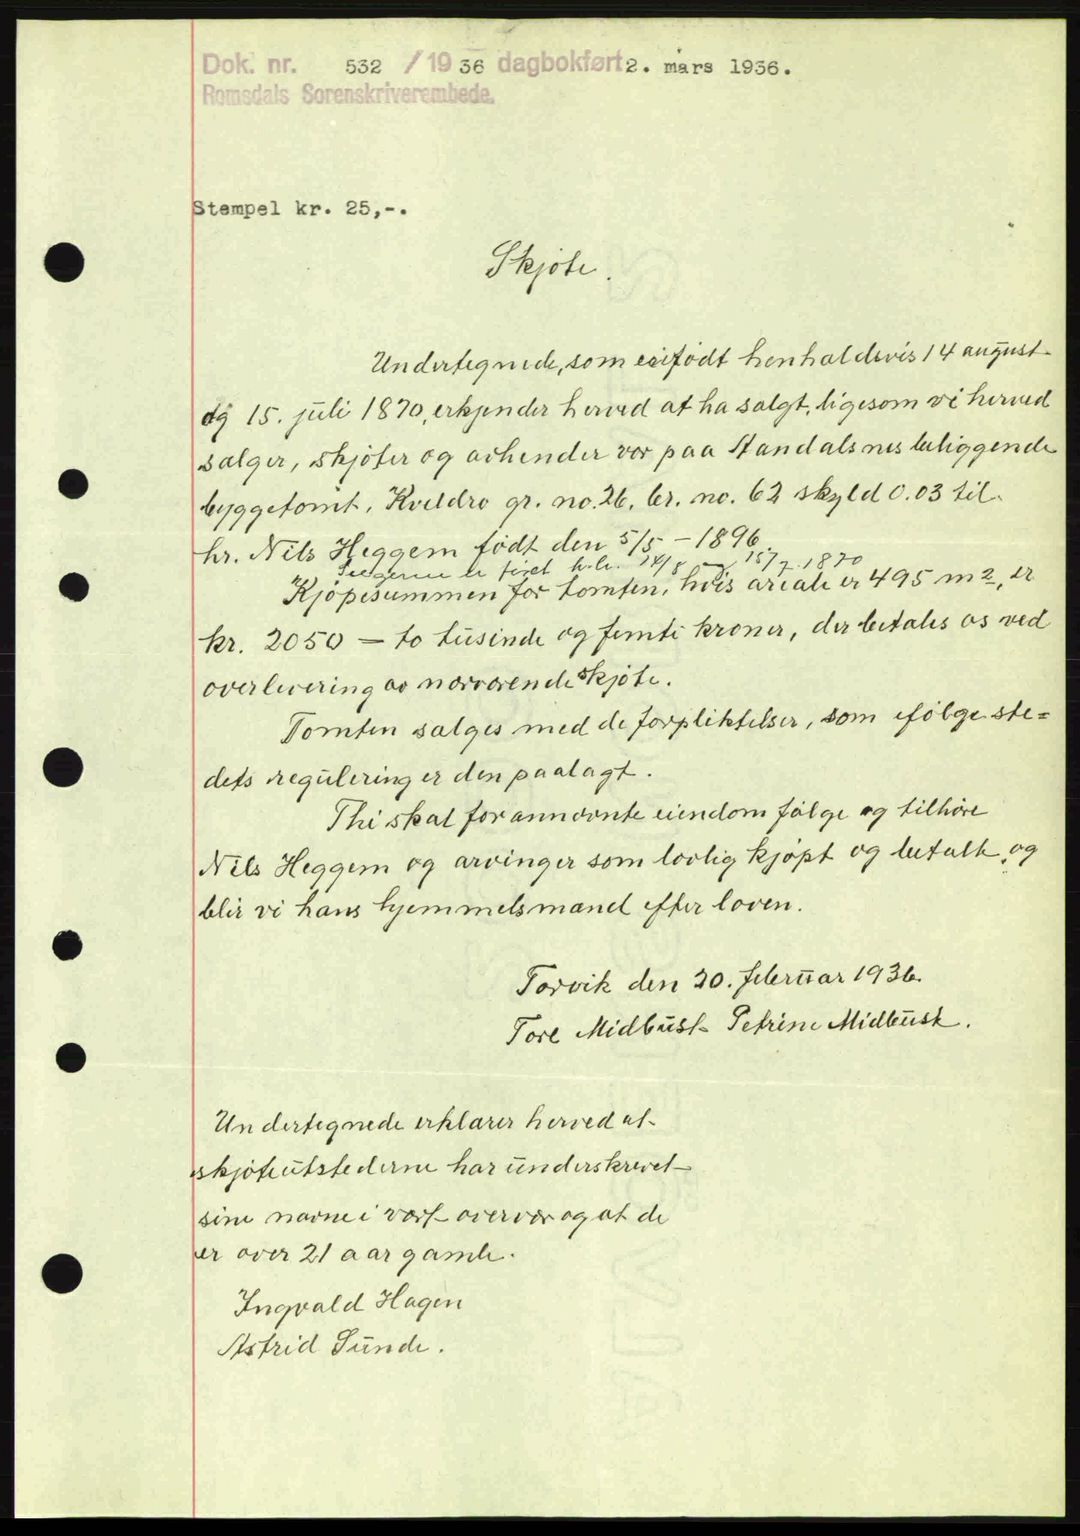 Dok. nr. 532 /19 36 dagbokført 2. mars 1936.
Romsdals Sorenskriverembede.
Stempel kr. 25,-.
Skjøte.
Undertegnede, som er født henholdsvis 14 august
og 15. juli 1870, erkjender herved at ha solgt, ligesom vi herved
sælger, skjøter og avhender vor paa Aandalsnes beliggende
byggetomt, Kveldro gr. no. 26, br. no. 62 skyld 0.03 til
hr. Nils Heggem født den 5/5 - 1896.
Selgerne er født h.h. 14/8 og 15/7 1870
Kjøpesummen for tomten, hvis areale er 495 m2, er
kr. 2050 — to tusinde og femti kroner, der betales os ved
overlevering av nærværende skjøte.
Tomten sælges med de forpliktelser, som ifølge ste=
dets regulering er den paalagt.
Thi skal forannævnte eiendom følge og tilhøre
Nils Heggem og arvinger som lovlig kjøpt og betalt, og
blir vi hans hjemmelsmænd efter loven.
Torvik den 20. februar 1936.
Tore Midbust Petrine Midbust.
Undertegnede erklærer herved at
skjøteutstederne har underskrevet
sine navne i vort overvær og at de
er over 21 aar gamle.
Ingvald Hagen
Astrid Sunde.